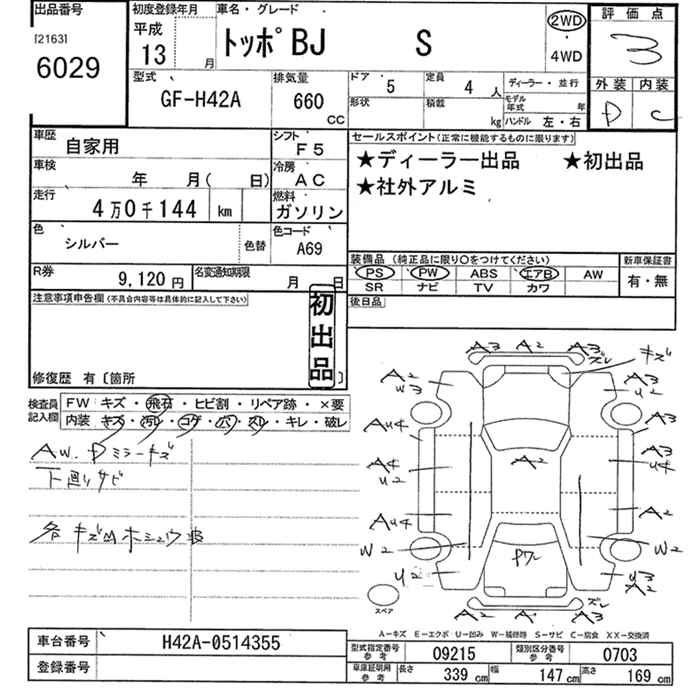 出品番号 初度登録年月 車名・グレード 評価点
[2163] 平成 トッポBJ S 2WD 3
6029 13 月 ・ 4WD
型式 排気量 ドア 5 定員 4 人 ディーラー・並行 外装 内装
GF-H42A 660 cc 形状 積載 kg モデル年式 年 D C
ハンドル 左・右
車歴 自家用 シフト F5 セールスポイント(正常に機能するものに限ります)
車検 年 月( 日) 冷房 AC ★ディーラー出品 ★初出品
走行 4万0千144 km 燃料 ガソリン ★社外アルミ
色 シルバー 色替 色コード A69
装備品(純正品に限り○をつけてください) 新車保証書
R券 9,120円 名変通知期限 月 日 PS PW ABS エアB AW 有・無
SR ナビ TV カワ
注意事項申告欄(不具合内容等は具体的に記入して下さい) 初出品 後日品
修復歴 有〔箇所 〕
検査員 FW キズ・飛石・ヒビ割・リペア跡・×要
記入欄 内装 キズ・汚れ・コゲ・ ・スレ・キレ・破レ
AW. Dミラーキズ
下廻りサビ
A3 A2 A3 ズレ キズ
A2 W3 A3 U2
AU4 A3
A4 U2 A2 A3 U4
AU4 A2
W2 W2
U2 Pワレ U3 A2
A2 A ズレ A2
スペア
A-キズ E-エクボ U-凹み W-補修跡 S-サビ C-腐食 XX-交換済
車台番号 H42A-0514355 型式指定番号 参考 09215 類別区分番号 参考 0703
登録番号 車庫証明用 参考 長さ 339 cm 幅 147 cm 高さ 169 cm